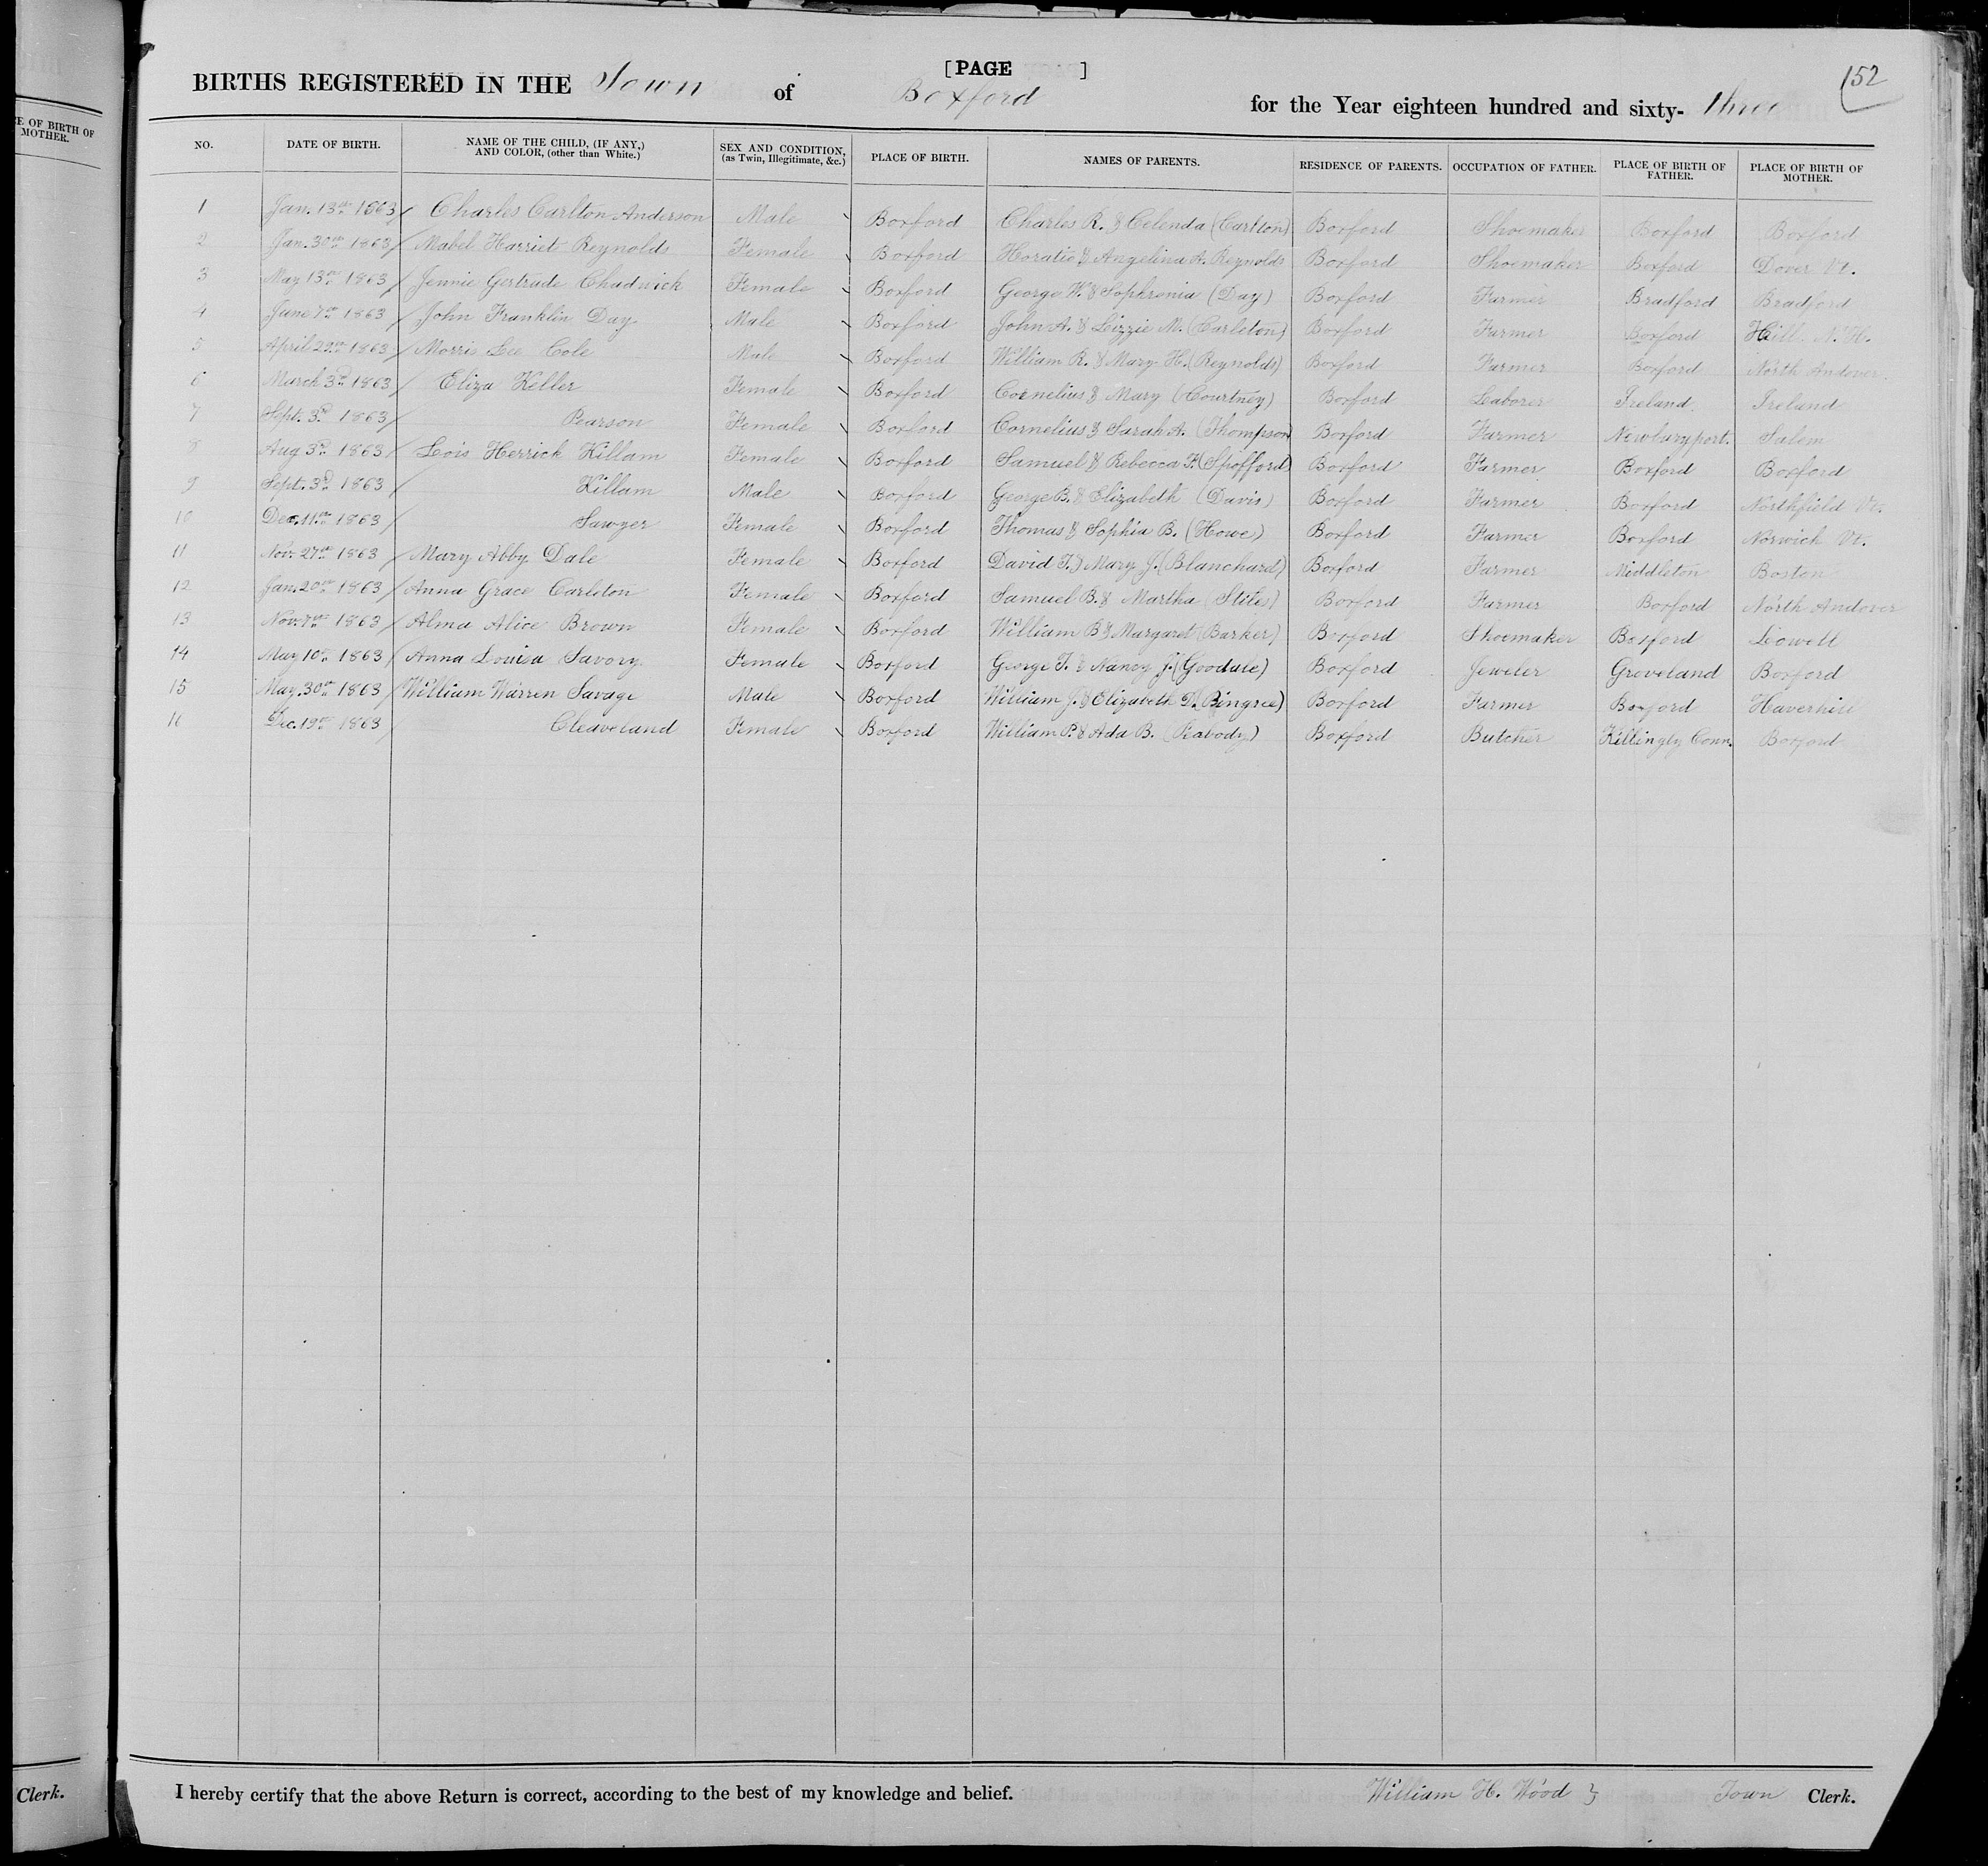 E OF BIRTH OF
MOTHER.
Clerk.
[PAGE ]
152
BIRTHS REGISTERED IN THE Town of Boxford for the Year eighteen hundred and sixty- three
NO. DATE OF BIRTH. NAME OF THE CHILD, (IF ANY,) AND COLOR, (other than White.) SEX AND CONDITION, (as Twin, Illegitimate, &c.) PLACE OF BIRTH. NAMES OF PARENTS. RESIDENCE OF PARENTS. OCCUPATION OF FATHER. PLACE OF BIRTH OF FATHER. PLACE OF BIRTH OF MOTHER.
1 Jan. 13th 1863 Charles Carlton Anderson Male Boxford Charles R. & Celenda (Carlton) Boxford Shoemaker Boxford Boxford
2 Jan. 30th 1863 Mabel Harriet Reynolds Female Boxford Horatio & Angelina A. Reynolds Boxford Shoemaker Boxford Dover Vt.
3 May 13th 1863 Jennie Gertrude Chadwick Female Boxford George W. & Sophronia (Day) Boxford Farmer Bradford Bradford
4 June 7th 1863 John Franklin Day Male Boxford John A. & Lizzie M. (Carleton) Boxford Farmer Boxford Hill N. H.
5 April 29th 1863 Morris Lee Cole Male Boxford William R. & Mary H. (Reynolds) Boxford Farmer Boxford North Andover
6 March 3d 1863 Eliza Keller Female Boxford Cornelius & Mary (Courtney) Boxford Laborer Ireland Ireland
7 Sept. 3d 1863 Pearson Female Boxford Cornelius & Sarah A. (Thompson) Boxford Farmer Newburyport. Salem
8 Aug 3d 1863 Lois Herrick Killam Female Boxford Samuel & Rebecca F. (Spofford) Boxford Farmer Boxford Boxford
9 Sept. 3d 1863 Killam Male Boxford George B. & Elizabeth (Davis) Boxford Farmer Boxford Northfield Vt.
10 Dec. 11th 1863 Sawyer Female Boxford Thomas & Sophia B. (Howe) Boxford Farmer Boxford Norwich Vt.
11 Nov. 27th 1863 Mary Abby Dale Female Boxford David T. & Mary J. (Blanchard) Boxford Farmer Middleton Boston
12 Jan. 20th 1863 Anna Grace Carleton Female Boxford Samuel B. & Martha (Stiles) Boxford Farmer Boxford North Andover
13 Nov. 7th 1863 Alma Alice Brown Female Boxford William B & Margaret (Barker) Boxford Shoemaker Boxford Lowell
14 May 10th 1863 Anna Louisa Savory Female Boxford George T. & Nancy J. (Goodale) Boxford Jeweler Groveland Boxford
15 May. 30th 1863 William Warren Savage Male Boxford William J. & Elizabeth D. (Pingree) Boxford Farmer Boxford Haverhill
16 Dec. 19th 1863 Cleaveland Female Boxford William P. & Ada B. (Peabody) Boxford Butcher Killingly Conn. Boxford
I hereby certify that the above Return is correct, according to the best of my knowledge and belief. William H. Wood } Town Clerk.